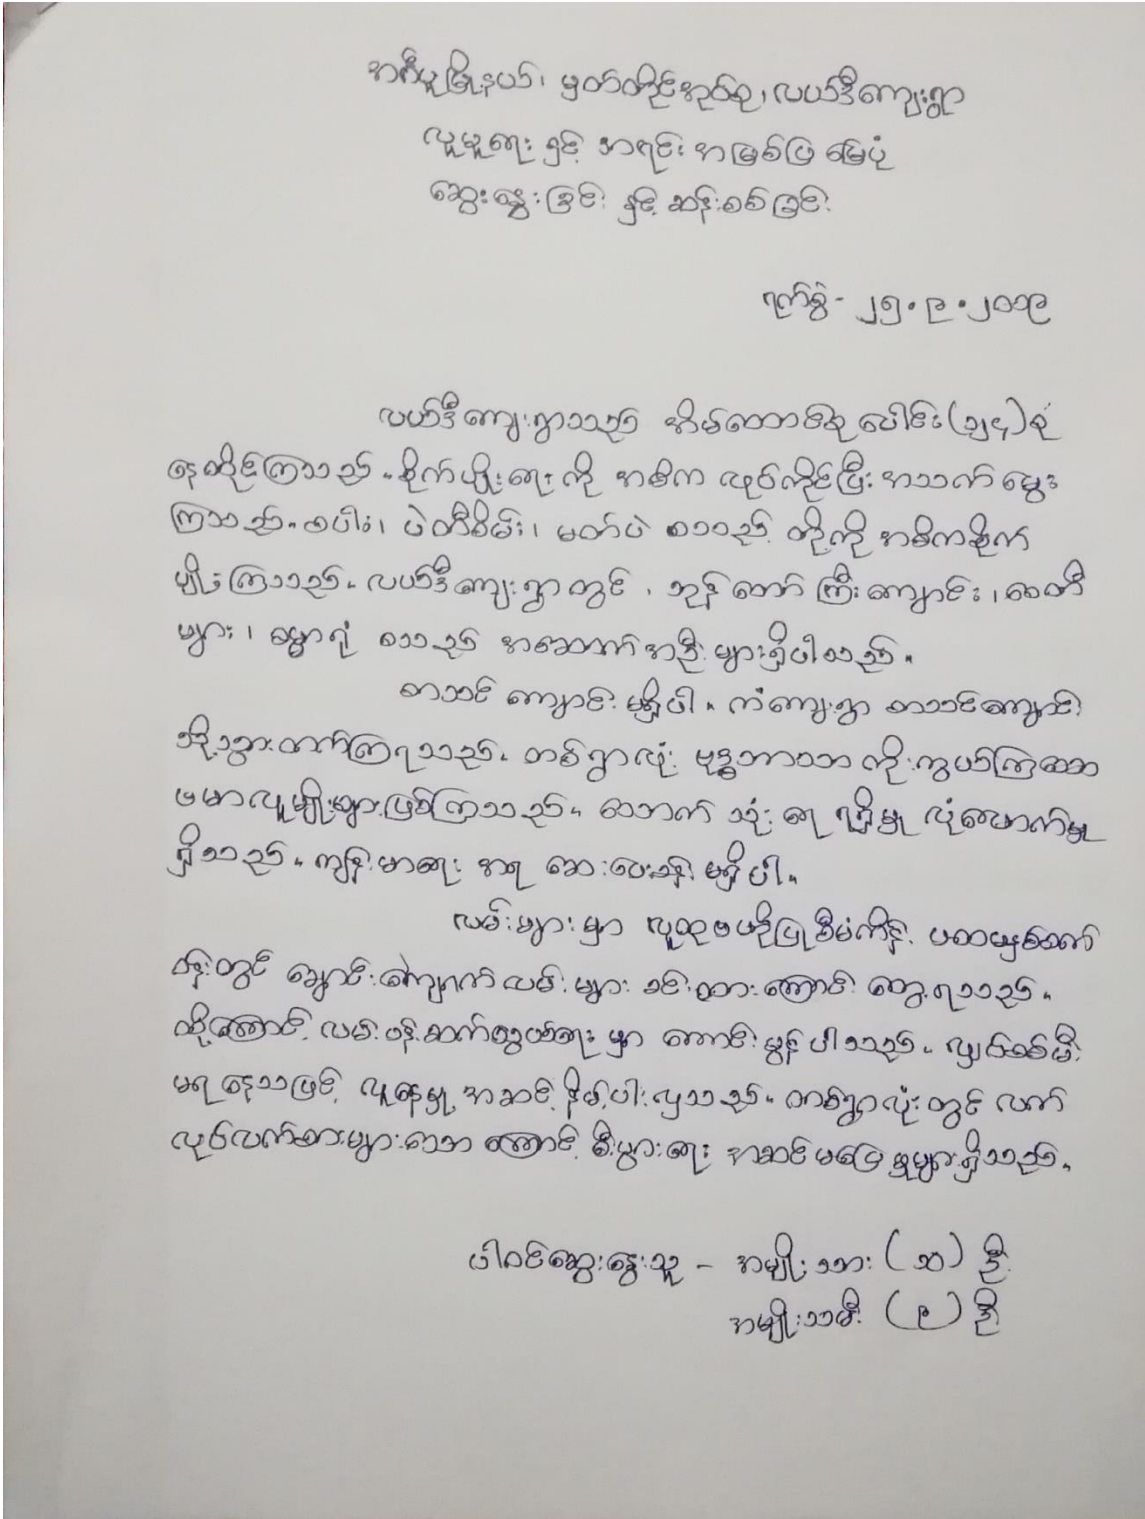 အင်္ဂပူမြို့နယ်၊ မှတ်တိုင်အုပ်စု၊ လယ်ဒီကျေးရွာ
လူမှုရေး နှင့် အရင်း အမြစ်ပြ မြေပုံ
ဆွေးနွေးခြင်း နှင့် ဆန်းစစ်ခြင်း
ရက်စွဲ - ၂၅.၉.၂၀၁၉
လယ်ဒီကျေးရွာသည် အိမ်ထောင်စုပေါင်း စု
နေထိုင်ကြသည်။ စိုက်ပျိုးရေး ကို အဓိက လုပ်ကိုင်ပြီး အသက် မွေး
ကြသည်။ စပါး၊ ပဲတီစိမ်း၊ မတ်ပဲ စသည် တို့ကို အဓိကစိုက်
ပျိုးကြသည်။ လယ်ဒီကျေးရွာ တွင် ၊ ဘုန်းတော် ကြီးကျောင်း၊ စေတီ
များ၊ ဓမ္မာရုံ စသည် အဆောက်အဦး များရှိပါသည်။
စာသင် ကျောင်း မရှိပါ။ ကံကျေးရွာ စာသင်ကျောင်း
သို့သွားတက်ကြရသည်။ တစ်ရွာလုံး ဗုဒ္ဓဘာသာ ကိုးကွယ်ကြသော
ဗမာလူမျိုးများဖြစ်ကြသည်။ သောက် သုံး ရေ ရရှိမှု လုံလောက်မှု
ရှိသည်။ ကျန်းမာရေး အရ ဆေးပေးခန်း မရှိပါ။
လမ်းများ မှာ လူထုဗဟိုပြုစီမံကိန်း ပထမနှစ်ဆက်
တွင် ချောင်းကျောက် လမ်းများ ခင်းထားကြောင်း တွေ့ရသည်။
ထို့ကြောင့် လမ်းပန်းဆက်သွယ်ရေး မှာ ကောင်းမွန်ပါသည်။ လျှပ်စစ်မီး
မရ သေးသဖြင့် လူနေမှု အဆင့် နိမ့်ပါးလှသည်။ တစ်ရွာလုံးတွင် လက်
လုပ်လက်စားများသော ကြောင့် စီးပွားရေး အဆင်မပြေ မှုများရှိသည်။
ပါဝင်ဆွေးနွေးသူ - အမျိုးသား ဦး
အမျိုးသမီး (၉) ဦး